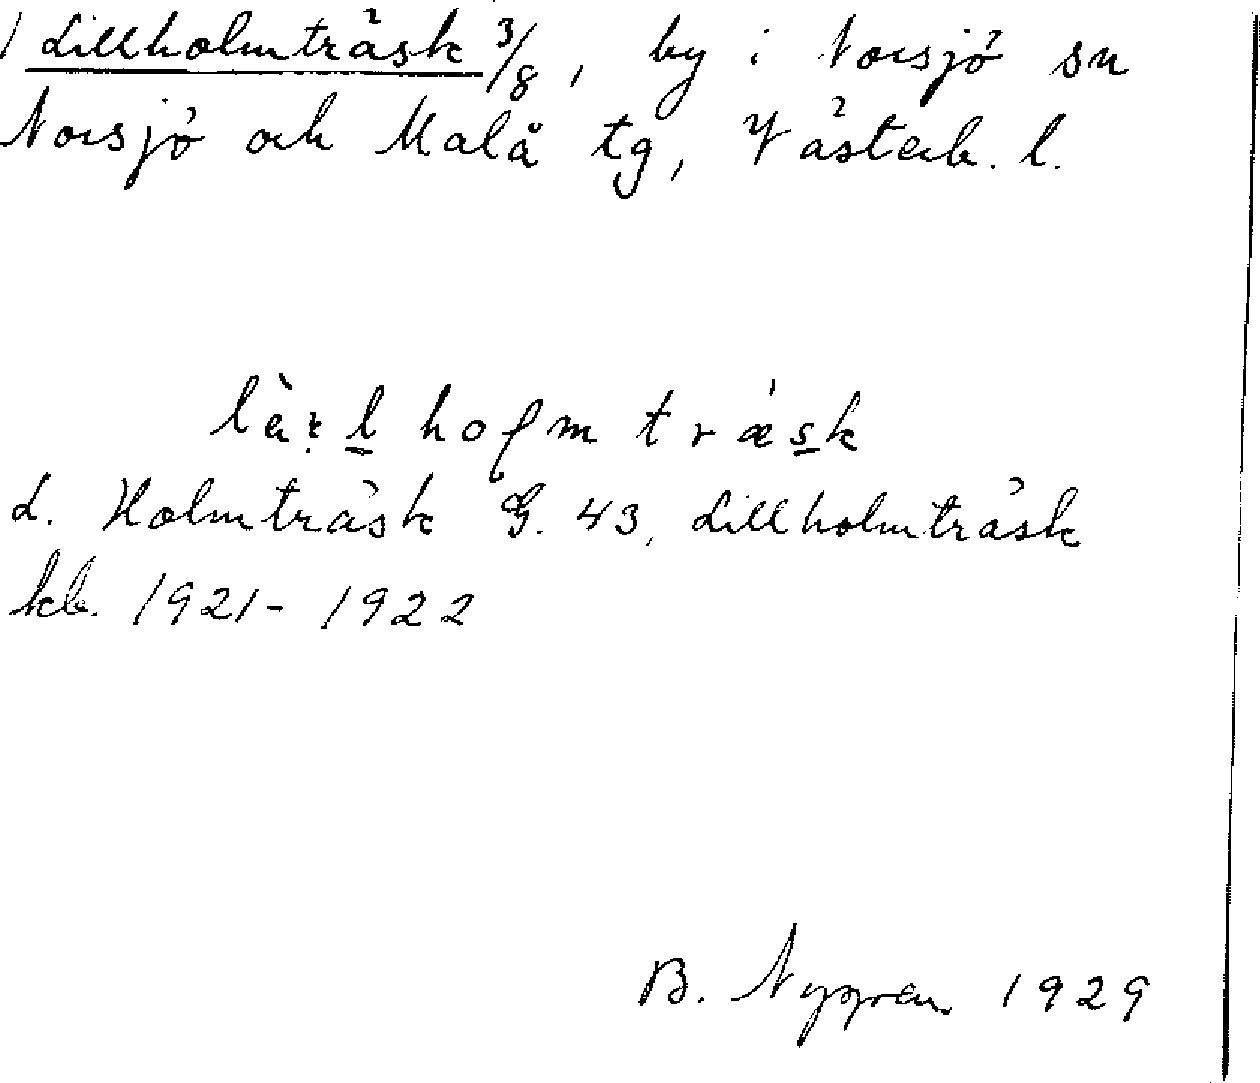 Lillholmträsk 3/8, by i Norsjö sn
Norsjö och Malå tg, Västerb. l.
L. Holmträsk G. 43, Lillholmträsk
kb. 1921-1922
B. Nygren 1929